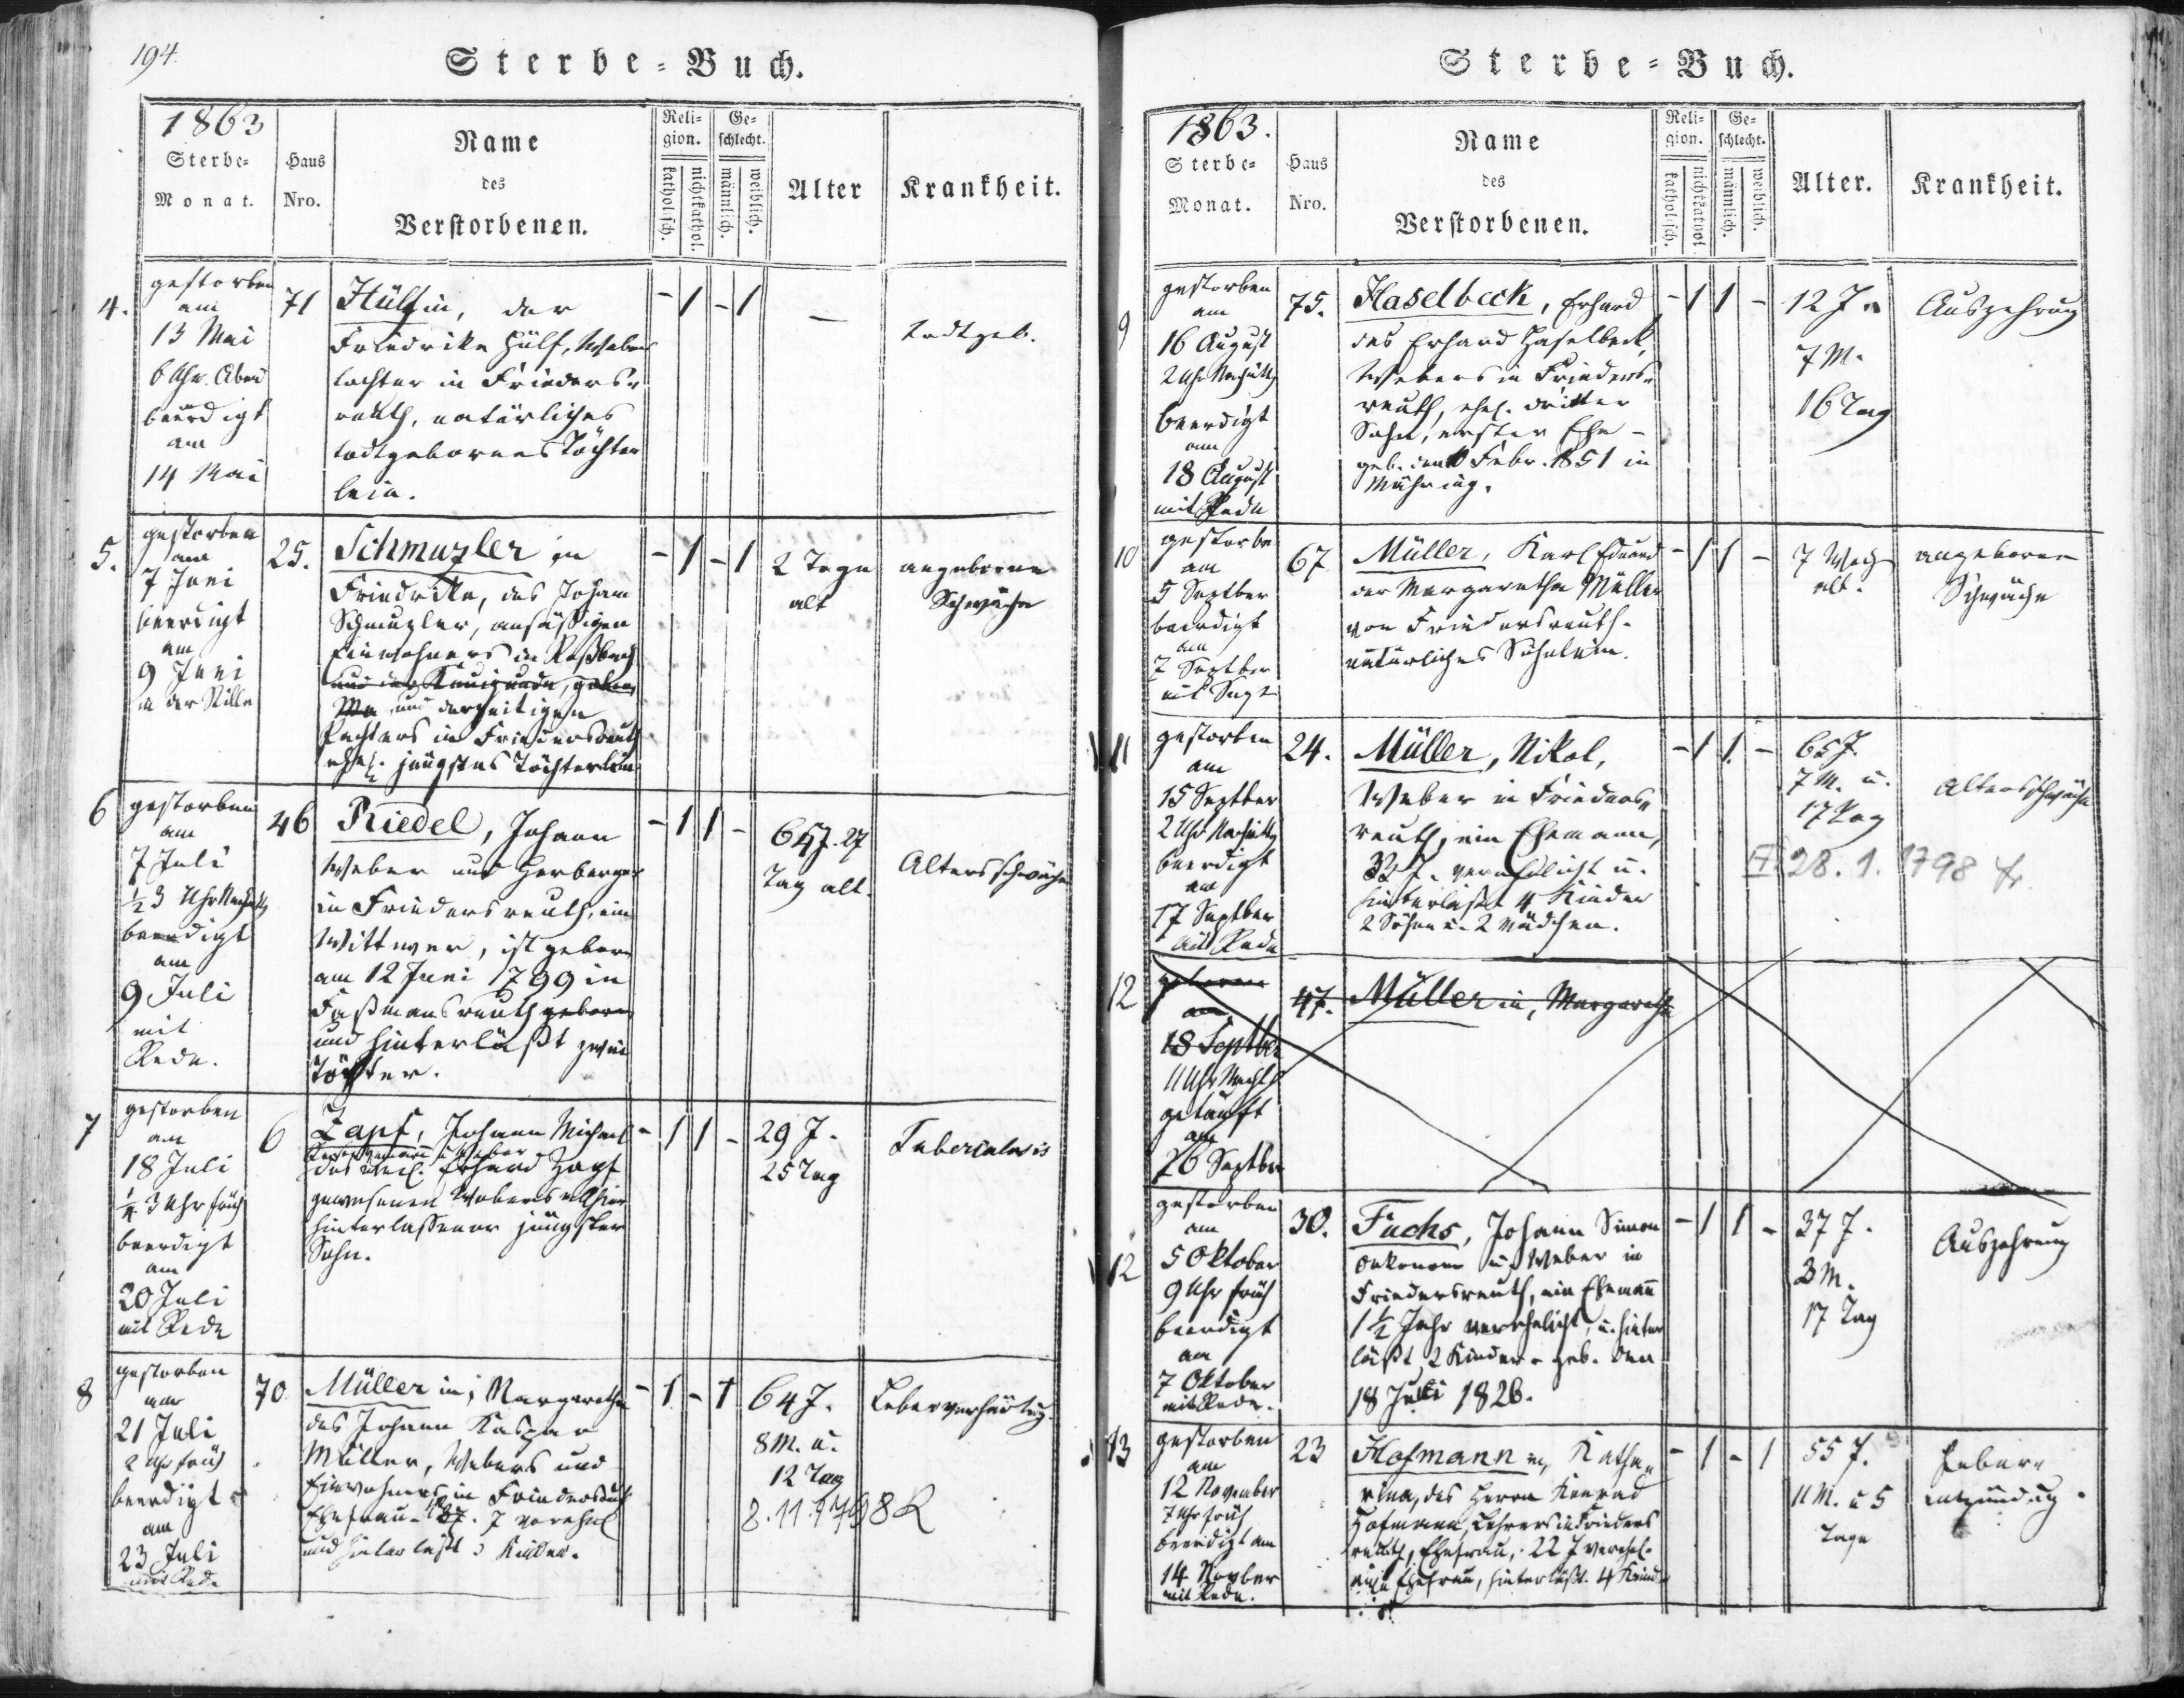 194.
Sterbe=Buch.
1863
Sterbe=
Monat.
Haus
Nro.
Name
des
Verstorbenen.
Reli=
gion.
katholisch.
nichtkathol.
Ge=
schlecht.
männlich.
weiblich.
Alter
Krankheit.
4.
gestorben
am
13 Mai
6 Uhr Abend
beerdigt
am
14 Mai
71
Hülfin, der
Friedrike Hülf, Webers
tochter in Frieders=
reuth, natürliches
todtgebornes Töchter
lein.
- 1 - 1
—
todtgeb.
5.
gestorben
am
7 Juni
beerdigt
am
9 Juni
in der Stille
25.
Schmuzler in
Friedrike, des Johann
Schmuzler, ansäßigen
Einwohners in Roßbach
und der Kunigunda, gebor
und derzeitigen
Pachters in Friedersreuth
ehel. jüngstes Töchterlein
- 1 - 1
2 Tage
alt
angeborne
Schwäche
6
gestorben
am
7 Juli
½3 Uhr Nachmittg
beerdigt
am
9 Juli
mit
Rede.
46
Riedel, Johann
Weber und Herberger
in Friedersreuth, ein
Wittwer, ist geboren
am 12 Juni 1799 in
Faßmansreuth geboren
und hinterläßt zwei
Töchter.
- 1 1 -
64 J. 27
Tag alt.
Altersschwäche
7
gestorben
am
18 Juli
¼ 3 Uhr früh
beerdigt
am
20 Juli
mit Rede
6
Zapf, Johann Michael
u Weber
des weil. Erhard Zapf
gewesenen Webers allhier
hinterlassener jüngster
Sohn.
- 1 1 -
29 J.
25 Tag
Tuberculosis
8
gestorben
am
21 Juli
2 Uhr früh
beerdigt
am
23 Juli
mit Rede
70.
Müller in, Margaretha
des Johann Kaspar
Müller, Webers und
Einwohners in Friedersreuth
Ehefrau - 37. J verehel
und hinterläßt 3 Kinder.
- 1 - 1
64 J.
8 M. u.
12 Tag
8.11.1798 R
Leberverhärtug.
Sterbe=Buch.
1863.
Sterbe=
Monat.
Haus
Nro.
Name
des
Verstorbenen.
Reli=
gion.
katholisch.
nichtkathol
Ge=
schlecht.
männlich.
weiblich.
Alter.
Krankheit.
9
gestorben
am
16 August
2 Uhr Nachmittg
beerdigt
am
18 August
mit Rede
75.
Haselbeck, Erhard
des Erhard Haselbeck,
Webers in Frieders=
reuth, ehel. dritter
Sohn, erster Ehe -
geb. den Febr. 1851 in
Mähring.
- 1 1 -
12 J.
7 M.
16 Tag
Auszehrung
10
gestorbe
am
5 Septber
beerdigt
am
7 Septber
mit Segen
67
Müller, Karl Eduard
der Margaretha Müller
von Friedersreuth.
natürliches Söhnlein.
- 1 1 -
7 Woch
alt.
angeborene
Schwäche
11
gestorben
am
15 Septber
2 Uhr Nachmittg
beerdigt
am
17 Septber
mit Rede
24.
Müller, Nikol,
Weber in Frieders=
reuth, ein Ehemann,
32 J. verehelicht u.
hinterläßt 4 Kinder
2 Söhne u. 2 Mädchen.
- 1 1 -
65 J.
7 M. u.
17 Tag
28.1.1798 fr
Altersschwäche
12
geboren
am
18 Septber
11 Uhr Nachts
getauft
am
26 Septber
47.
Müller in, Margaretha
12
gestorben
am
5 Oktober
9 Uhr früh
beerdigt
am
7 Oktober
mit Rede.
30.
Fuchs, Johann Simon
Oekonom u. Weber in
Friedersreuth, ein Ehemañ
1½ Jahr verehelicht, u. hinter
läßt 2 Kinder - geb. den
18 Juli 1826.
- 1 1 -
37 J.
3 M.
17 Tag
Auszehrung
13
gestorben
am
12 November
7 Uhr früh
beerdigt am
14 Novber
mit Rede.
23
Hofmann in, Katha=
rina, des Herrn Konrad
Hofmann, Lehrers in Frieders
reuth, Ehefrau, 22 J verehel.
Ehefrau, hinterläßt 4 Kinder
- 1 - 1
55 J.
11 M. u 5
Tage
Leber=
entzündug.